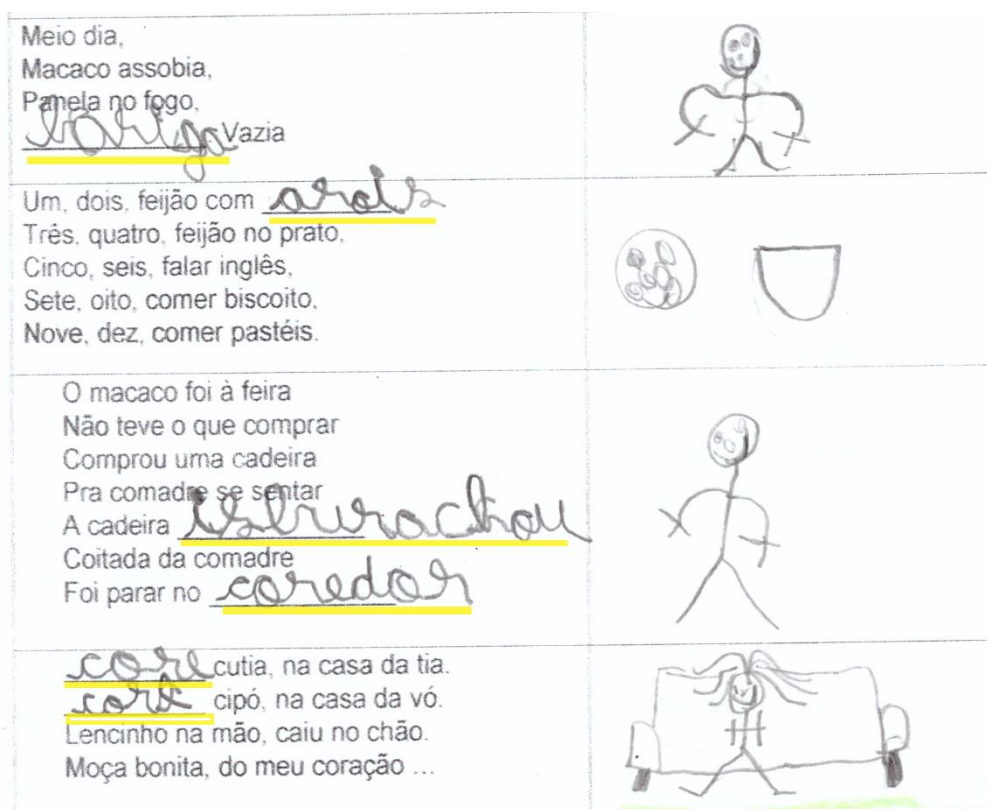 Meio dia,
Macaco assobia,
Panela no fogo,
bariga Vazia
Um, dois, feijão com arois
Três, quatro, feijão no prato,
Cinco, seis, falar inglês,
Sete, oito, comer biscoito,
Nove, dez, comer pastéis.
O macaco foi à feira
Não teve o que comprar
Comprou uma cadeira
Pra comadre se sentar
A cadeira isburachou
Coitada da comadre
Foi parar no coredor
core cutia, na casa da tia.
core cipó, na casa da vó.
Lencinho na mão, caiu no chão.
Moça bonita, do meu coração ...